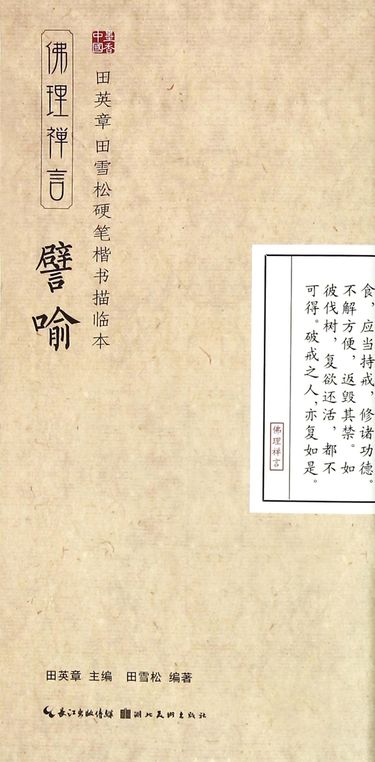 佛理禅言
譬喻
墨香中國
田英章田雪松硬笔楷书描临本
食，应当持戒，修诸功德。
不解方便，返毁其禁。如
彼伐树，复欲还活，都不
可得。破戒之人，亦复如是。
佛理禅言
田英章 主编 田雪松 编著
长江出版传媒 湖北美术出版社